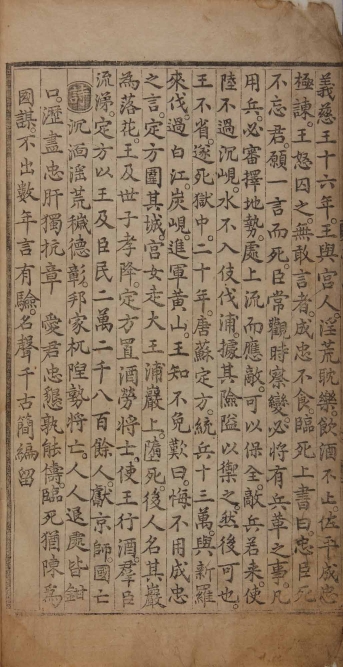 義慈王十六年。王與宮人。淫荒耽樂。飮酒不止。佐平成忠
極諫。王怒囚之。無敢言者。成忠不食。臨死上書曰。忠臣死
不忘君。願一言而死。臣常觀時察變。必將有兵革之事。凡
用兵。必審擇地勢。處上流而應敵。可以保全。敵兵若来。使
陸不過沉峴。水不入伎伐浦。據其險隘以禦之。然後可也。
王不省。遂死獄中。二十年。唐蘇定方。統兵十三萬。與新羅
來伐。過白江炭峴。進軍黃山。王知不免。歎曰。悔不用成忠
之言。定方圍其城。宮女走大王浦巖上。墮死。後人名其巖
為落花。王及世子孝降。定方置酒勞將士。使王行酒。羣臣
流涕。定方以王及臣民二萬二千八百餘人。獻京師。國亡
詩沉湎淫荒穢德彰。邦家杌隉勢將亡。人人退處皆鉗
口。瀝盡忠肝獨抗章 愛君忠懇孰能儔。臨死猶陳萬
國謀。不出數年言有驗。名聲千古簡編留